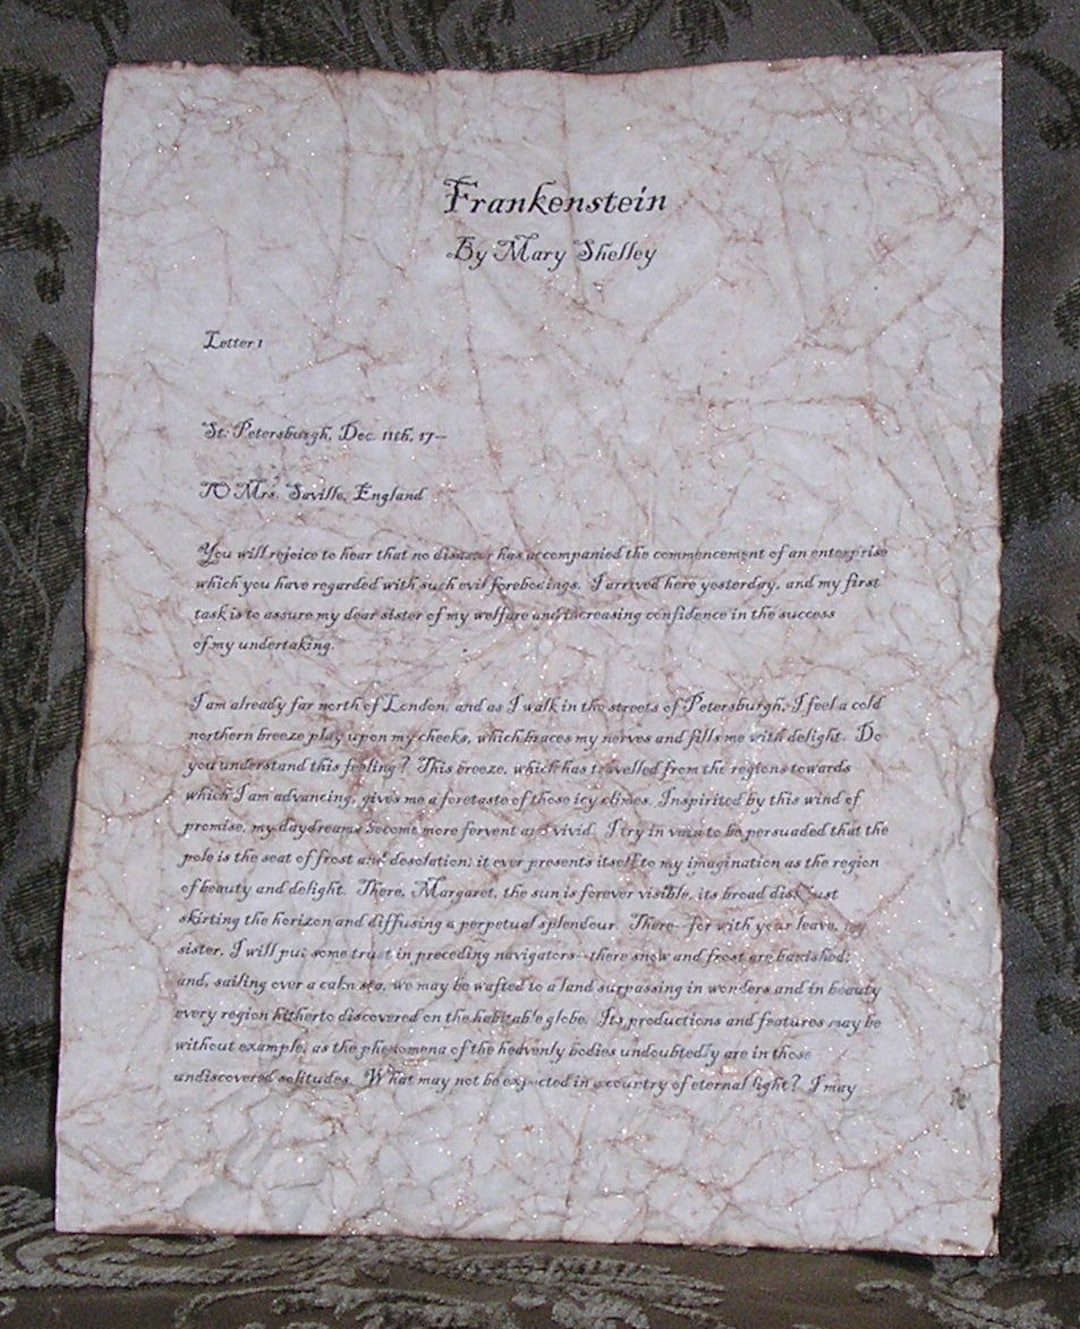 Frankenstein
By Mary Shelley
Letter 1
St. Petersburgh, Dec. 11th, 17--
TO Mrs. Saville, England
You will rejoice to hear that no disaster has accompanied the commencement of an enterprise
which you have regarded with such evil forebodings. I arrived here yesterday, and my first
task is to assure my dear sister of my welfare and increasing confidence in the success
of my undertaking.
I am already far north of London, and as I walk in the streets of Petersburgh, I feel a cold
northern breeze play upon my cheeks, which braces my nerves and fills me with delight. Do
you understand this feeling? This breeze, which has travelled from the regions towards
which I am advancing, gives me a foretaste of those icy climes. Inspirited by this wind of
promise, my daydreams become more fervent and vivid. I try in vain to be persuaded that the
pole is the seat of frost and desolation; it ever presents itself to my imagination as the region
of beauty and delight. There, Margaret, the sun is forever visible, its broad disk just
skirting the horizon and diffusing a perpetual splendour. There--for with your leave, my
sister, I will put some trust in preceding navigators--there snow and frost are banished;
and, sailing over a calm sea, we may be wafted to a land surpassing in wonders and in beauty
every region hitherto discovered on the habitable globe. Its productions and features may be
without example, as the phenomena of the heavenly bodies undoubtedly are in those
undiscovered solitudes. What may not be expected in a country of eternal light? I may